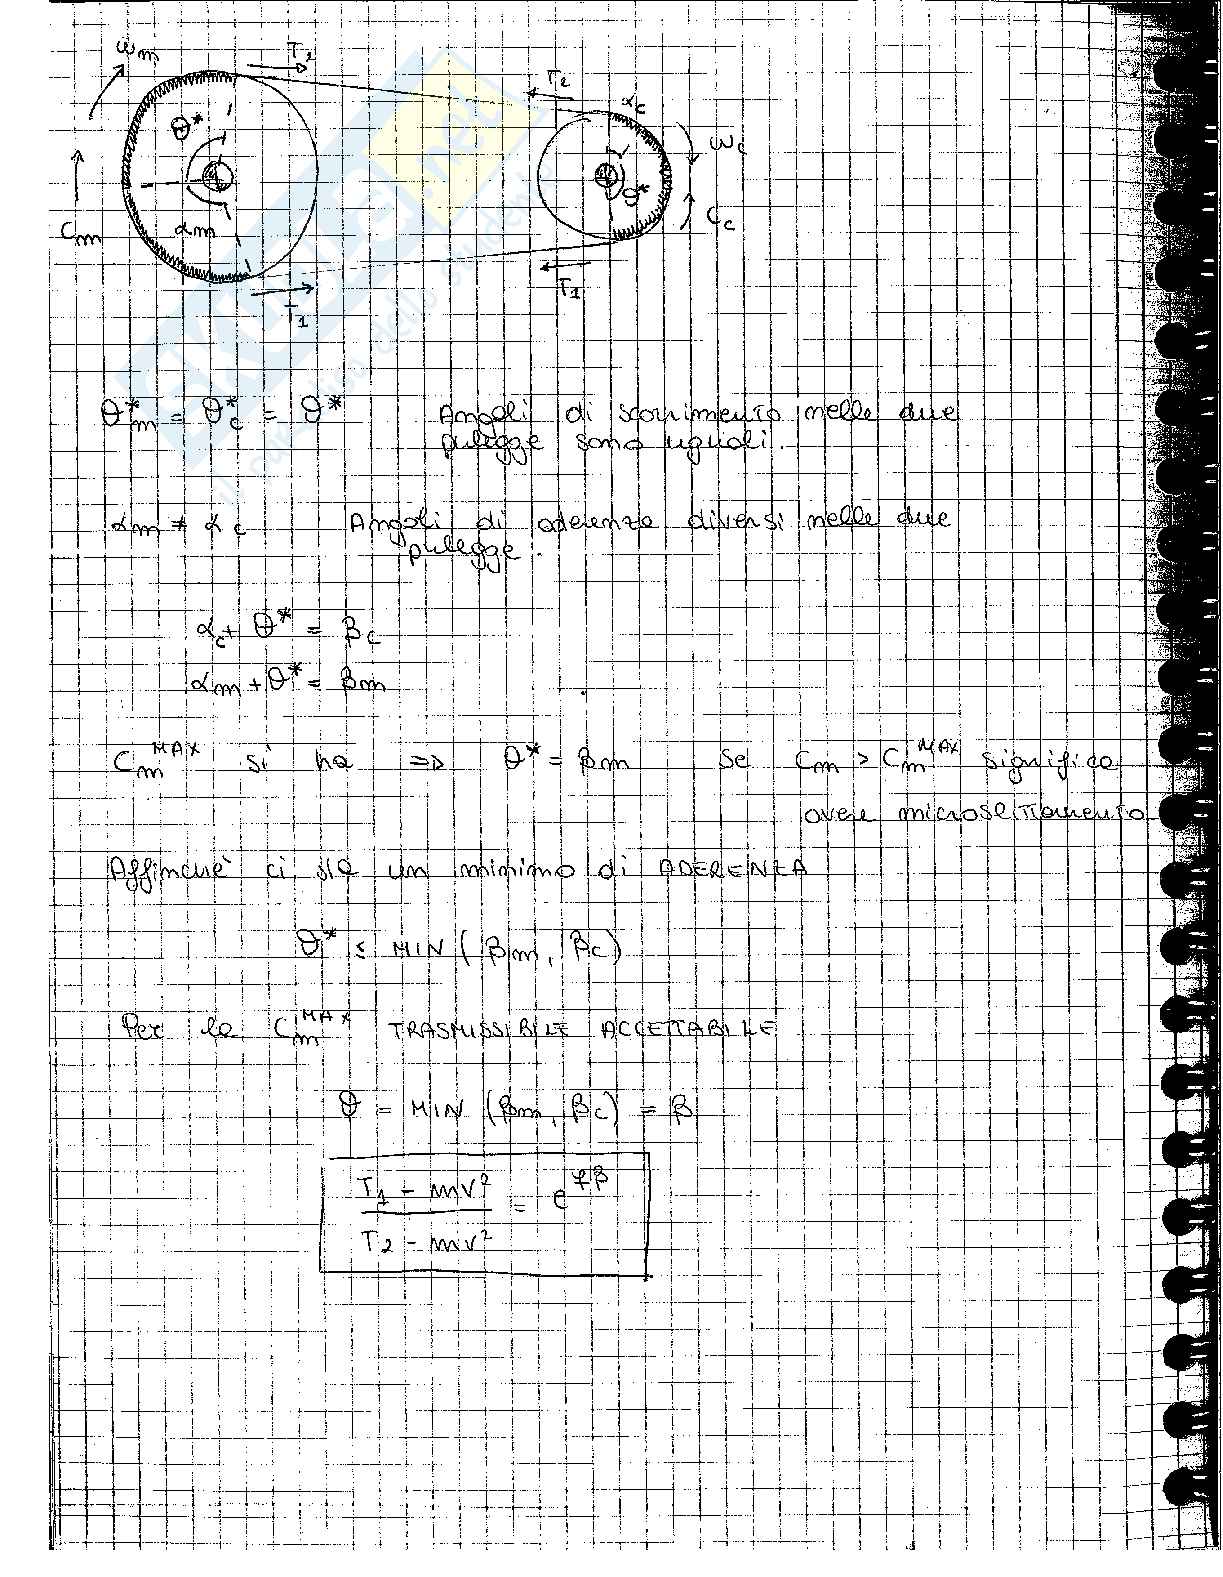 ωm
T2
T2
αc
θ*
ωc
θ*
Cm
αm
Cc
T1
T1
θ*m = θ*c = θ* Angoli di scorrimento nelle due
pulegge sono uguali.
αm ≠ αc Angoli di aderenza diversi nelle due
pulegge.
αc + θ* = βc
αm + θ* = βm
Cm^MAX si ha ⇒ θ* = βm Se Cm > Cm^MAX significa
avere microslittamento
Affinchè ci sia un minimo di ADERENZA
θ* ≤ MIN (βm, βc)
Per la Cm^MAX TRASMISSIBILE ACCETTABILE
θ = MIN (βm, βc) = β
T1 - mv² / T2 - mv² = e^fβ
SKUOLA.net
il paradiso dello studente